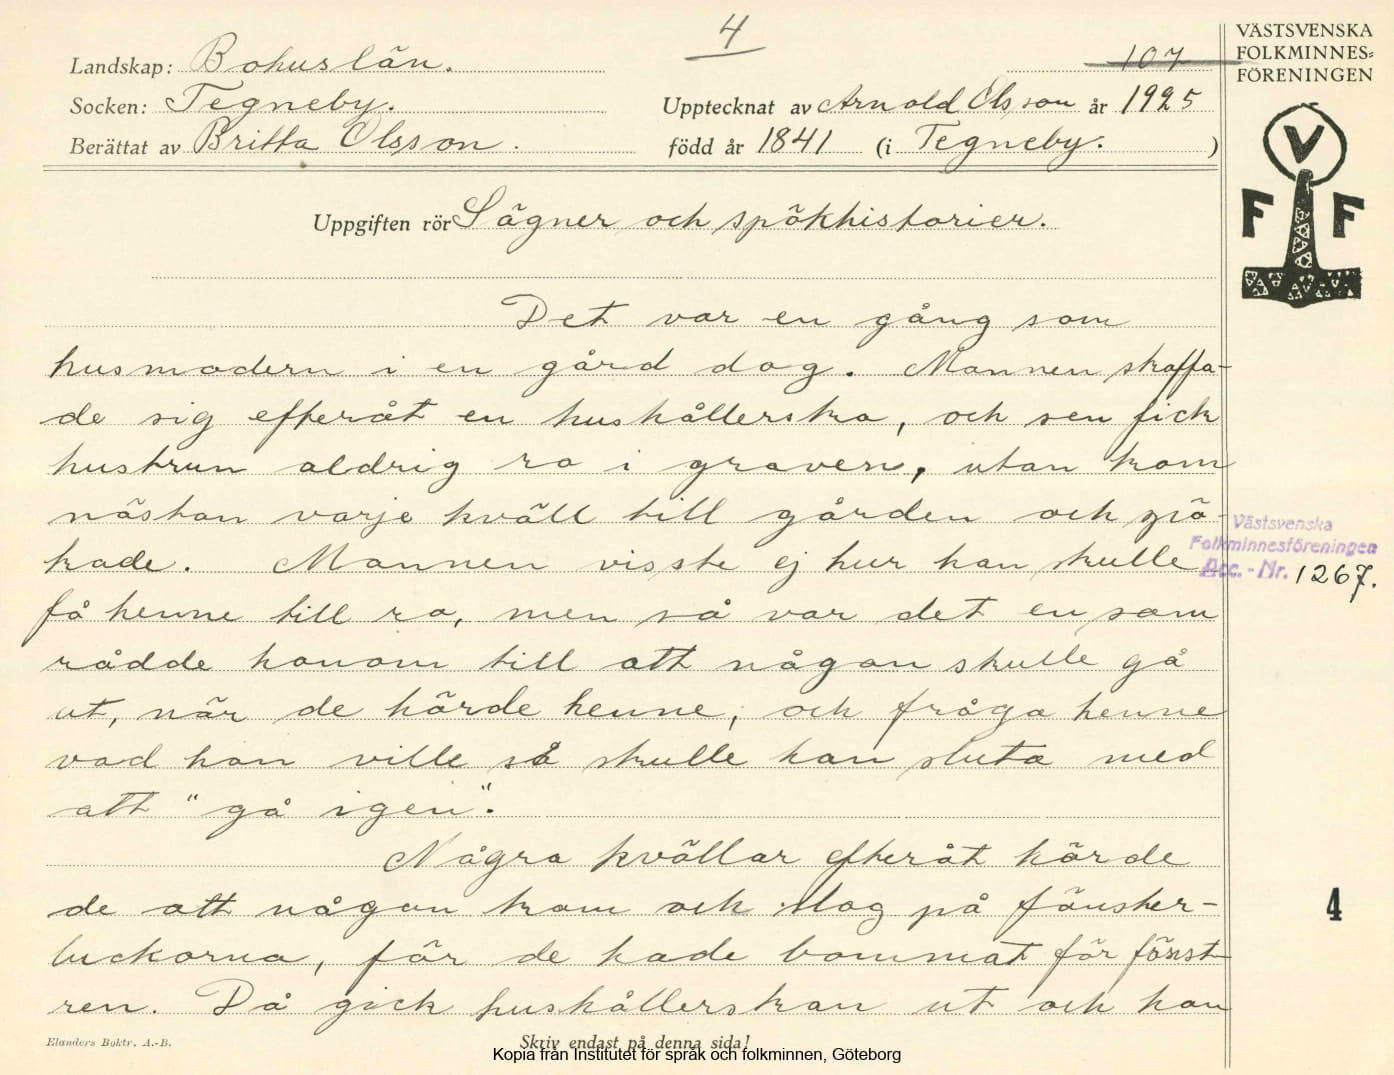 4
107
VÄSTSVENSKA
FOLKMINNES=
FÖRENINGEN
Landskap: Bohuslän.
Socken: Tegneby.
Upptecknat av Arnold Olsson år 1925
Berättat av Britta Olsson.
född år 1841 (i Tegneby.)
V
F F
Uppgiften rör Sägner och spökhistorier.
Det var en gång som
husmodern i en gård dog. Mannen skaffa-
de sig efteråt en hushållerska, och sen fick
hustrun aldrig ro i graven, utan kom
nästan varje kväll till gården och spö-
kade. Mannen visste ej hur han skulle
få henne till ro, men så var det en som
rådde honom till att någon skulle gå
ut, när de hörde henne, och fråga henne
vad hon ville så skulle hon sluta med
att "gå igen".
Några kvällar efteråt hörde
de att någon kom och slog på fönster-
luckorna, för de hade bommat för fönst-
ren. Då gick hushållerskan ut och hon
Västsvenska
Folkminnesföreningen
Acc.-Nr. 1267.
4
Elanders Boktr. A.-B.
Skriv endast på denna sida!
Kopia från Institutet för språk och folkminnen, Göteborg